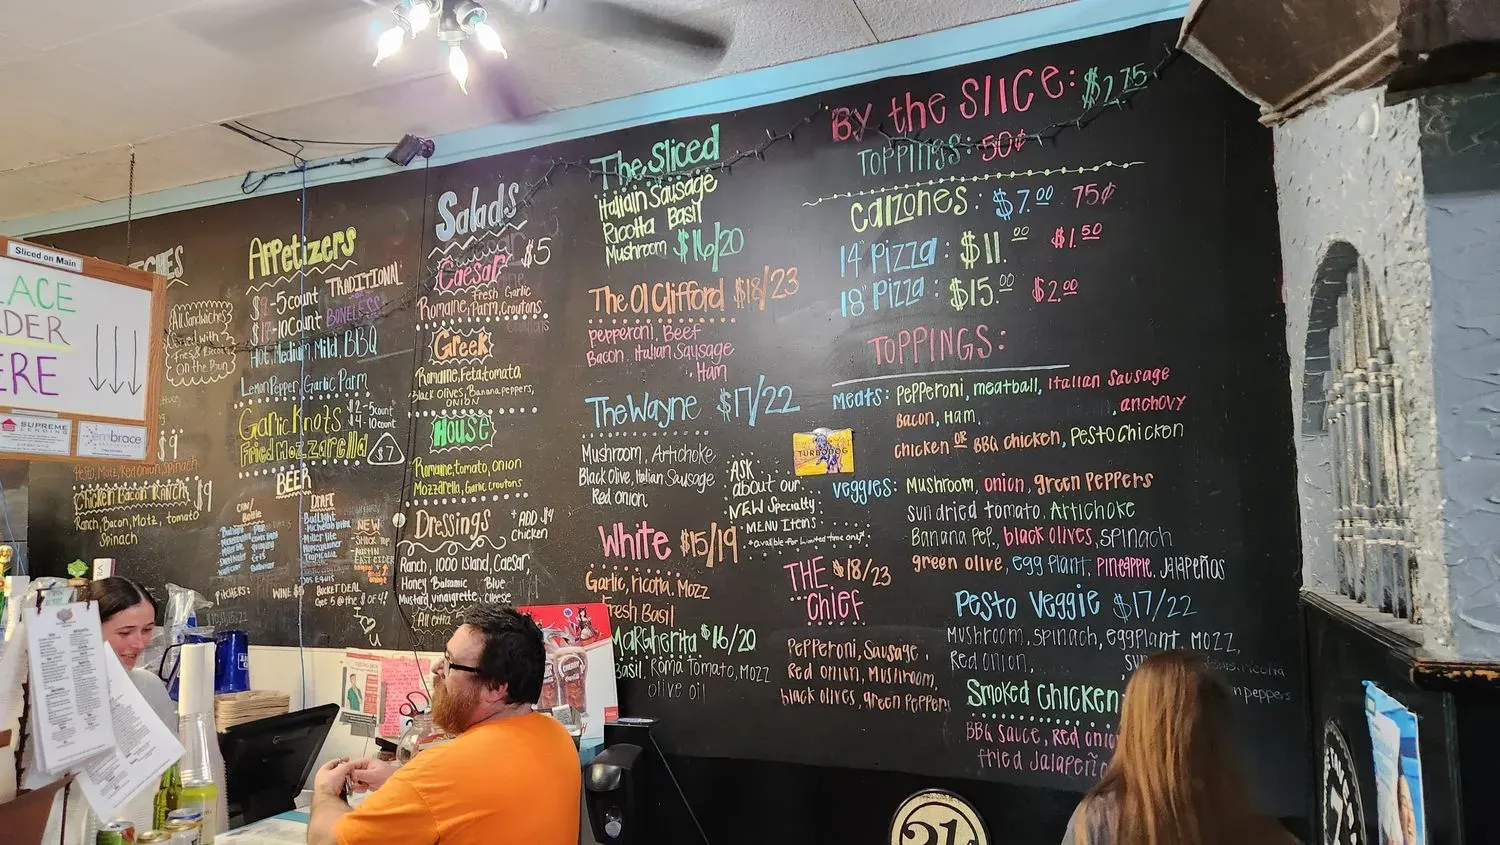 Sliced on Main
LACE
RDER
ERE
SUPREME
LENDING
embrace
CHES
All Sandwiches
Served with
Fries & Biscotti
On the Bun
$9
Pesto, Motz, Red Onion, Spinach
Chicken Bacon Ranch $9
Ranch, Bacon, Motz, tomato
Spinach
Appetizers
$9 - 5 count TRADITIONAL
$17 - 10 count BONELESS
Hot, Medium, Mild, BBQ
Lemon Pepper, Garlic Parm
Garlic Knots $2 - 5 count
$4 - 10 count
Fried Mozzarella $7
BEER
CAN/
Bottle
DRAFT
Bud Light
Miller lite
Tropicalia
DOS EQUIS
NEW
PITCHERS:
WINE $
BUCKET DEAL
Get 5 @ the $ of 4!
Salads
$5
Caesar
Fresh Garlic
Romaine, Parm, Croutons
Greek
Romaine, Feta, tomato,
Black Olives, Banana peppers,
ONION
House
Romaine, tomato, onion
Mozzarella, Garlic croutons
Dressings
+ ADD $4
chicken
Ranch, 1000 Island, Caesar,
Honey Balsamic Blue
Mustard, vinaigrette, cheese
All extra
The Sliced
Italiain Sausage
Ricotta Basil
Mushroom $16/20
The Ol Clifford $18/23
pepperoni, Beef
Bacon, Italian Sausage
Ham
The Wayne $17/22
Mushroom, Artichoke
Black Olive, Italian Sausage
Red onion
ASK
about our
NEW Specialty
MENU Items
*available for limited time only*
TURBODOG
White $15/19
Garlic, ricotta, Mozz
Fresh Basil
Margherita $16/20
Basil, Roma Tomato, Mozz
olive oil
THE Chief $18/23
Pepperoni, Sausage,
Red onion, Mushroom,
black olives, green Peppers
BY the SLICE: $2.75
TOPPINGS: 50¢
Calzones: $7.00 75¢
14" Pizza: $11.00 $1.50
18" Pizza: $15.00 $2.00
TOPPINGS:
meats: Pepperoni, meatball, Italian Sausage
Bacon, Ham, anchovy
chicken or BBQ chicken, Pesto Chicken
veggies: Mushroom, onion, green Peppers
sun dried tomato, Artichoke
Banana Pep., black olives, spinach
green olive, egg plant, Pineapple, Jalapeños
Pesto Veggie $17/22
Mushroom, spinach, eggplant, Mozz,
Red onion, sun
Smoked Chicken
BBQ Sauce, Red onio
fried Jalapeño
21